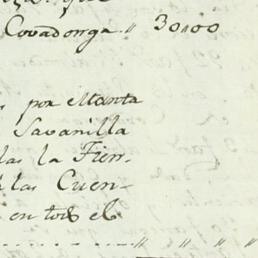 Covadonga " 30,,00
por Manta
Savanilla
las la Fien-
las Cuen-
en todo el
" " " "